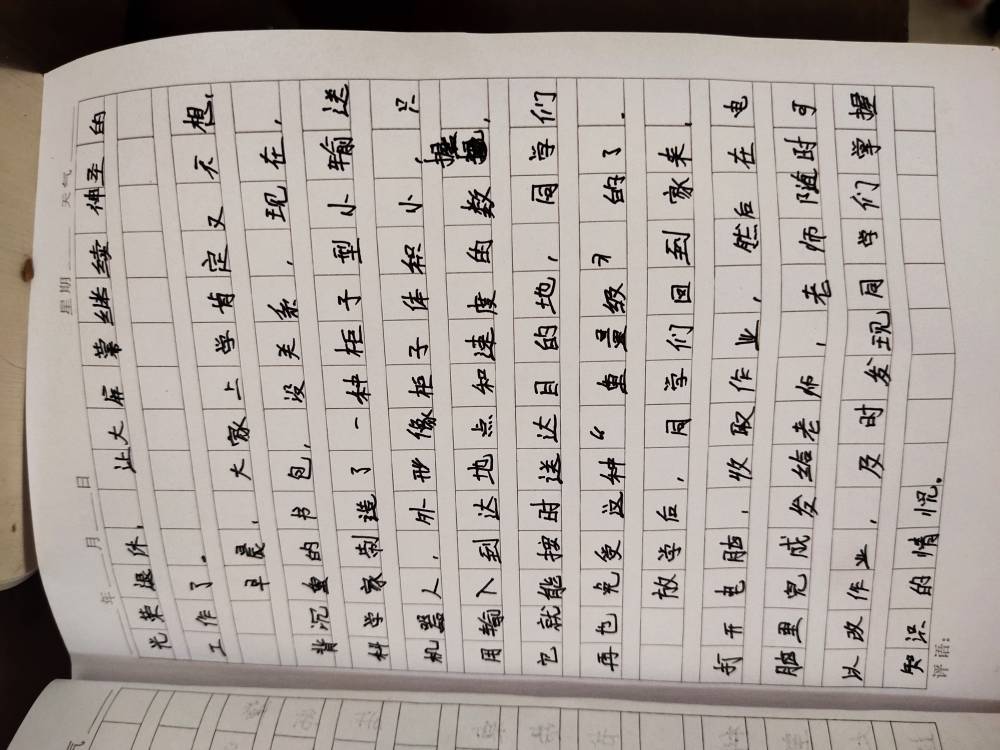 年 月 日 星期 天气
光荣退休,让大屏幕继续神圣的
工作了.
早晨,大家上学肯定又不想,
背沉重的书包,没关系,现在,
科学家制造了一种柜子型小输送
机器人,外形像柜子体积小,只
用输入到达地点和速度的数,
它就能按时送达目的地,同学们
再也免受这种“重量级”的了.
放学后,同学们回到家来,
打开电脑,收取作业,然后在电
脑里完成发给老师,老师随时可
以改作业,及时发现同学们掌握
知识的情况。
评语: